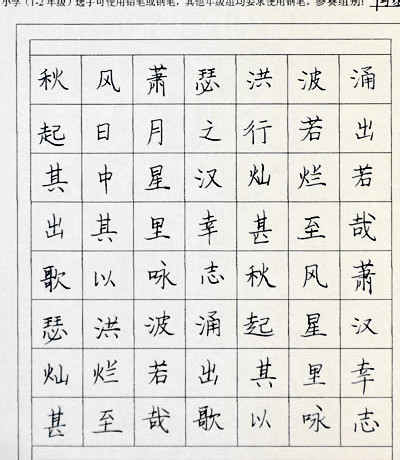 小学（1-2年级）选手可使用铅笔或钢笔，其他年级组均要求使用钢笔。参赛组别：
秋风萧瑟洪波涌
起日月之行若出
其中星汉灿烂若
出其里幸甚至哉
歌以咏志秋风萧
瑟洪波涌起星汉
灿烂若出其里幸
甚至哉歌以咏志